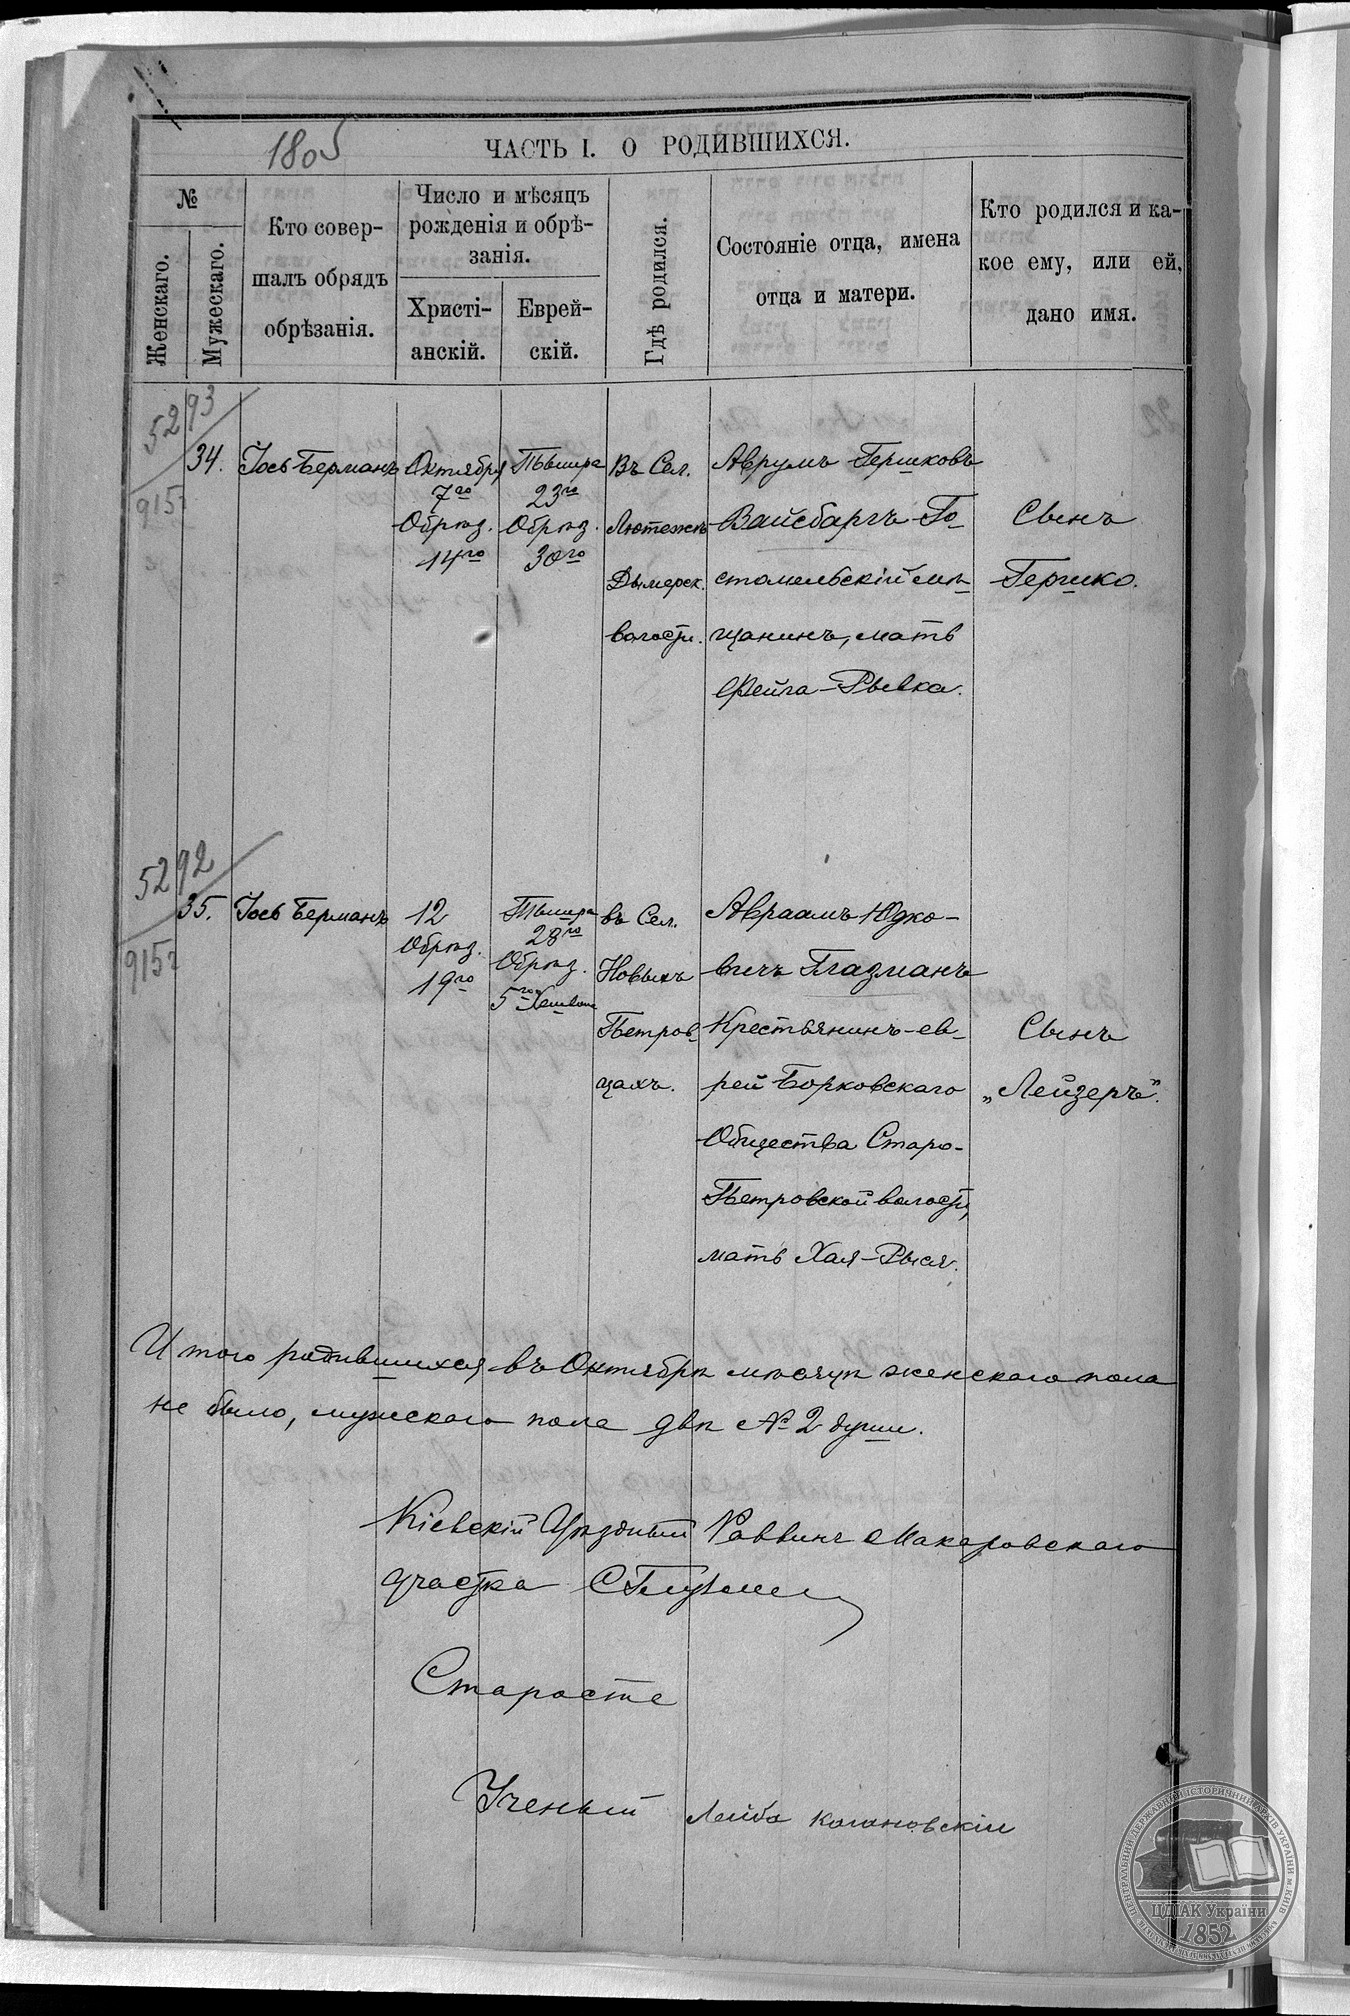 1805
ЧАСТЬ I. О РОДИВШИХСЯ.
№
Женскаго.
Мужескаго.
Кто совер-
шалъ обрядъ
обрѣзанія.
Число и мѣсяцъ
рожденія и обрѣ-
занія.
Христі-
анскій.
Еврей-
скій.
Гдѣ родился.
Состояніе отца, имена
отца и матери.
Кто родился и ка-
кое ему, или ей,
дано имя.
5293
915
34.
Іось Берманъ
Октября
7го
Обрѣз.
14го
Тышре
23го
Обрѣз.
30го
Въ Сел.
Лютежѣ
Дымерск.
волости.
Аврумъ Гершковъ
Вайсбаргъ Го
стомельскій мѣ
щанинъ, мать
Фейга-Рывка.
Сынъ
Гершко.
5292
915
35.
Іось Берманъ
12
Обрѣз.
19го
Тышре
28го
Обрѣз.
5го Хешвана
въ Сел.
Новыхъ
Петров
цахъ.
Авраамъ Юдко-
вичъ Глазманъ
Крестьянинъ-ев
рей Борковскаго
Общества Старо-
Петровской волости,
мать Хая-Рыся.
Сынъ
„Лейзеръ".
Итого родившихся въ Октябрѣ мѣсяцѣ женскаго пола
не было, мужскаго пола двѣ № 2 души.
Кіевскій Уѣздный Раввинъ Макаровскаго
участка
Староста
Ученый Лейба Кагановскій
ЦЕНТРАЛЬНИЙ ДЕРЖАВНИЙ ІСТОРИЧНИЙ АРХІВ УКРАЇНИ м. КИЇВ
ЦДІАК України
1852